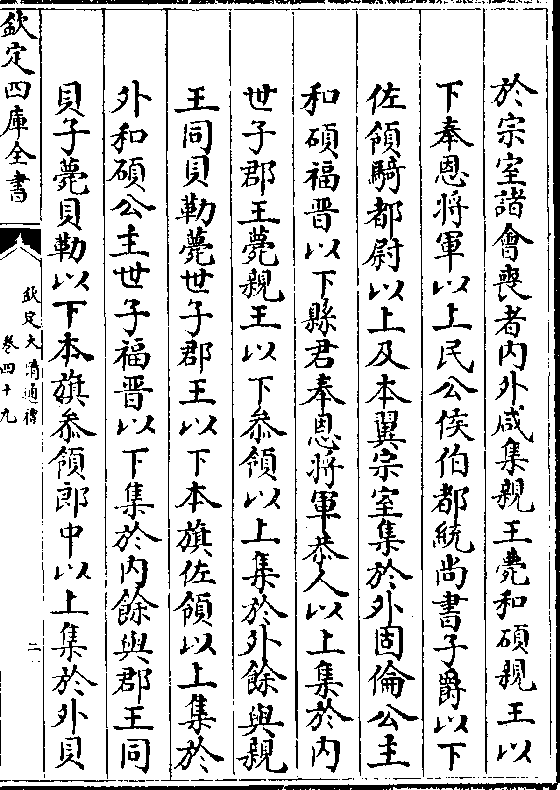 於宗室諸會喪者内外咸集親王薨和碩親王以
下奉恩將軍以上民公侯伯都統尚書子爵以下
佐領騎都尉以上及本翼宗室集於外固倫公主
和碩福晋以下縣君奉恩將軍恭人以上集於内
世子郡王薨親王以下叅領以上集於外餘與親
王同貝勒薨世子郡王以下本旗佐領以上集於
外和碩公主世子福晋以下集於内餘與郡王同
貝子薨貝勒以下本旗叅領郎中以上集於外貝
欽定四庫全書
欽定大清通禮
卷四十九
二